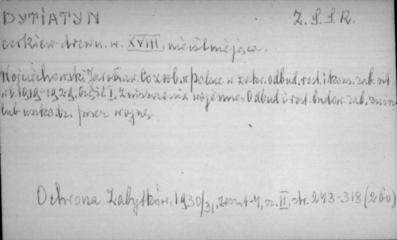 DYTIATYN Z.S.S.R.
cerkiew drewn. w. XVIII, nieistniejąca.
Wojciechowski Jarosław. Co zrob. w Polsce w zakr. odbud. rest. i kons. zab. szt.
w l. 1919-1929. Część I. Zniszczenia wojenne. Odbud. i rest. budow. zab. zniszcz.
lub uszkodz. przez wojnę.
Ochrona Zabytków, 1930/31, zesz. 1-4, cz. II, str. 293-318 (260)